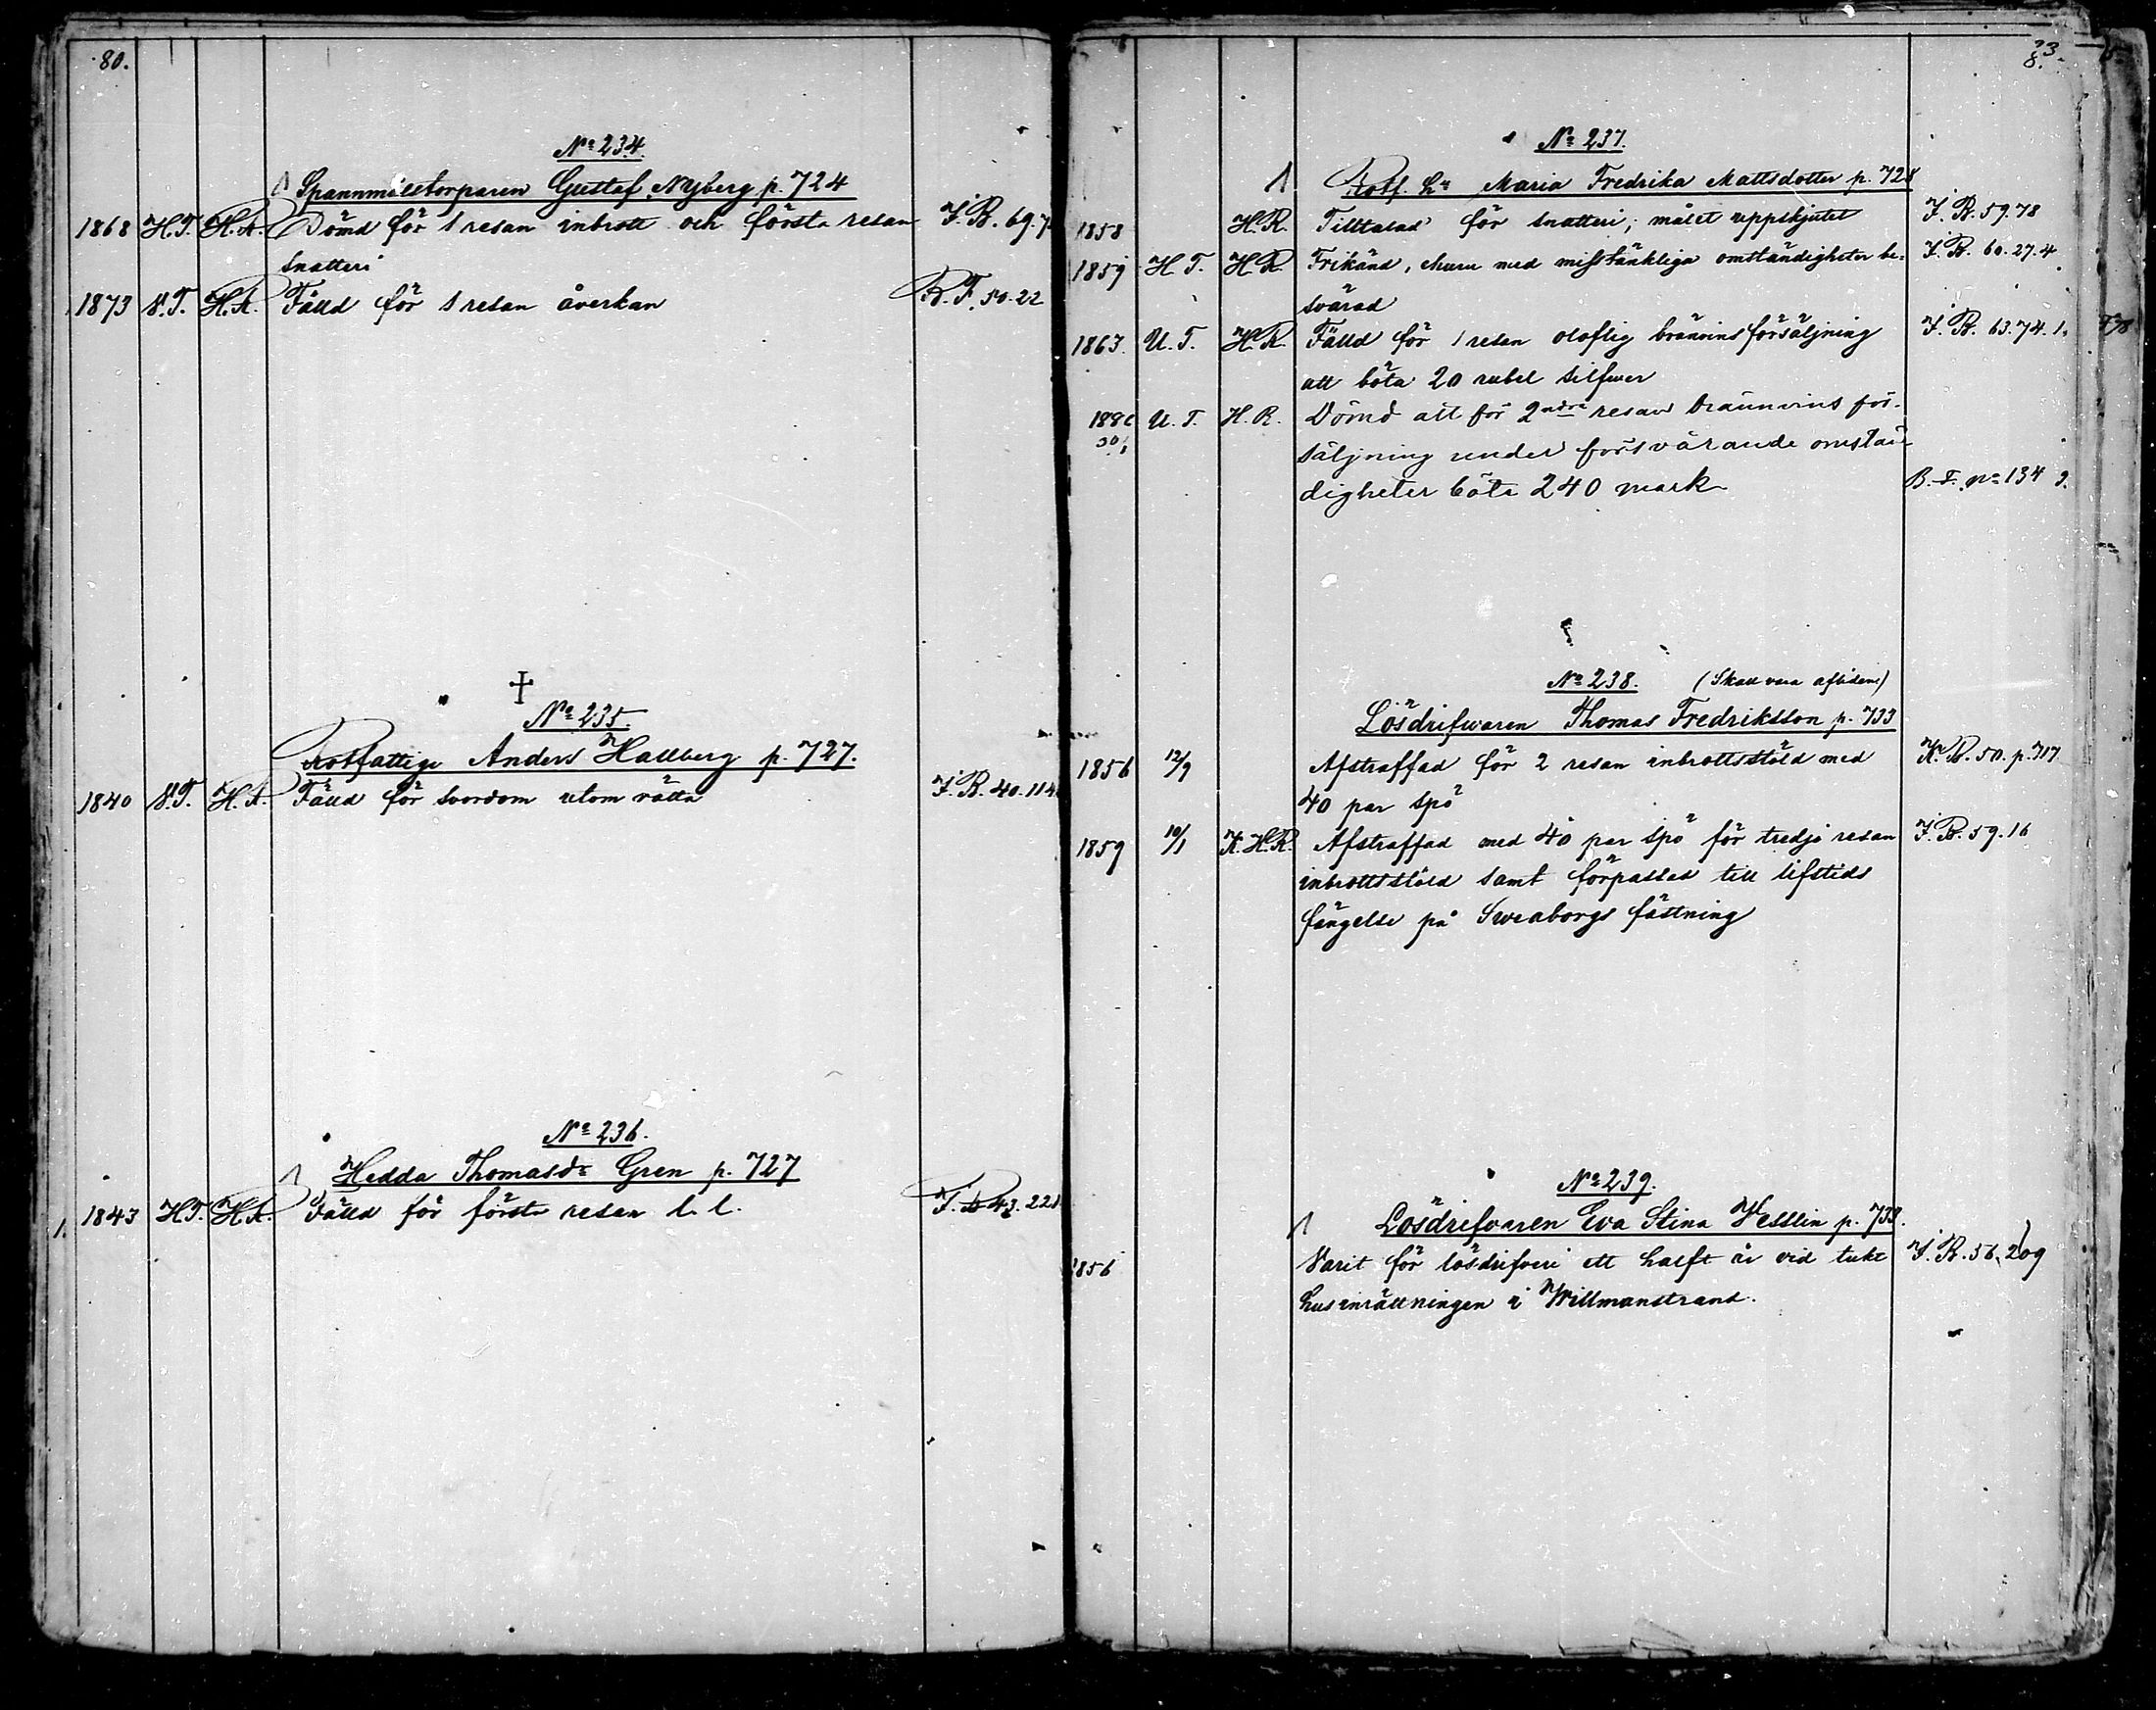 80.
No 234.
Spannmålstorparen Gustaf Nyberg p. 724
1868 H.T. H.R. Dömd för 1 resan inbrott och första resan I.B. 69.7
snatteri
1873 V.T. H.R. Fälld för 1 resan åverkan B.F. 50.22
†
No 235.
Rotfattige Anders Hallberg p. 727.
1840 V.T. H.R. Fälld för svordom utom rätta I.B. 40.114
No 236.
Hedda Thomasdr Gren p. 727
1843 H.T. H.R. Fälld för första resan l. l. I.B. 43.221
No 237.
Rotf. Maria Fredrika Mattsdotter p. 728
1858 H.R. Tilltalad för snatteri; målet uppskjutet I.B. 59.78
1859 H.T. H.R. Frikänd, men med misstänkliga omständigheter be- I.B. 60.27.4
svärad
1863. U.T. H.R. Fälld för 1 resan oloflig bränvinsförsäljning I.B. 63.74.1.
att böta 20 rubel silfwer
U.T. H.R. Dömd att för 2ndra resan bräunvins för-
säljning under försvårande omstän-
digheter böta 240 mark B.F. no 134
No 238. (Skall vara afliden)
Lösdrifwaren Thomas Fredriksson p. 733
1856 12/9 Afstraffad för 2 resan inbrottsstöld med K.B. 50. p. 717
40 par spö
1859 10/1 K.H.R. Afstraffad med 40 par spö för tredje resan I.B. 59.16
inbrottsstöld samt förpassad till lifstids
fängelse på Sweaborgs fästning
No 239.
Lösdrifvaren Eva Stina Wesslin p. 738.
1856 Varit för lösdrifveri ett halft år vid tukt I.B. 56.209
husinrättningen i Willmanstrand.